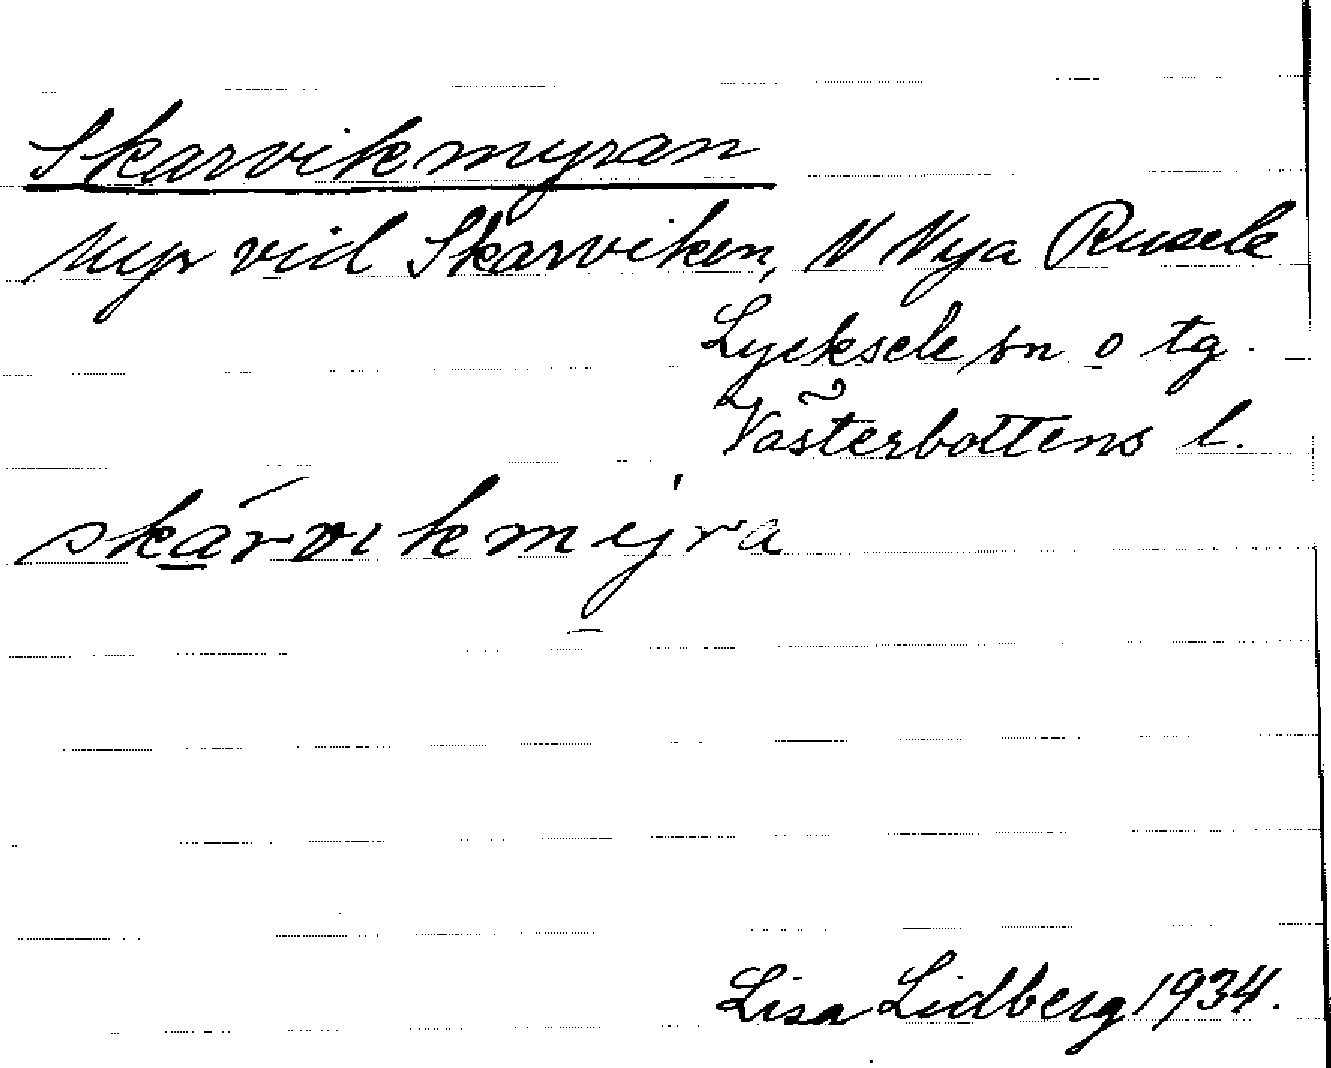 Skarvikmyran
Myr vid Skarviken, N Nya Rusele
Lycksele sn o tg.
Västerbottens l.
skárvikmy̱'ra
Lisa Lidberg 1934.